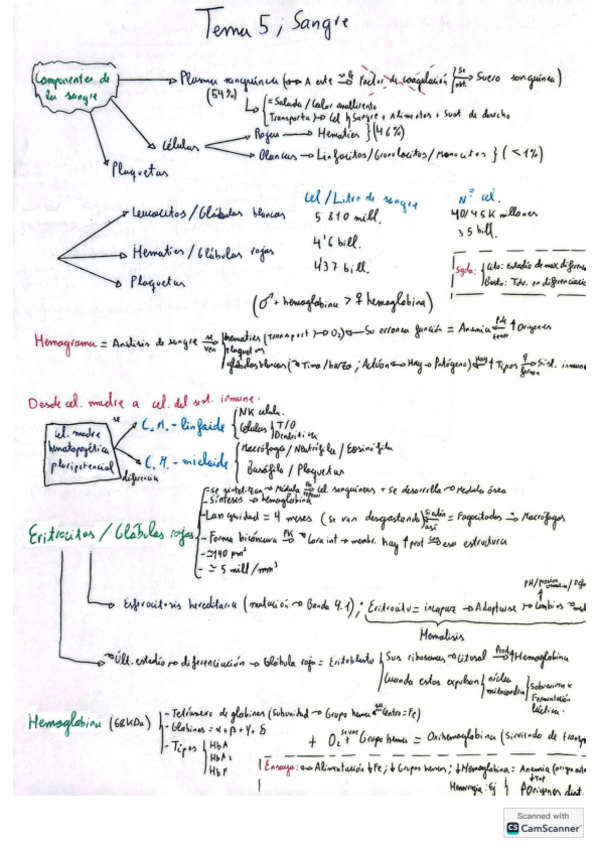 Tema 5; Sangre
Componentes de la sangre
Plasma sanguíneo
(54%)
A este
Factor de coagulación
Suero sanguíneo)
= Salado / Color amarillento
Transporta
Cel
Sangre + Alimentos + Sust de desecho
Células
Rojas → Hematies } (46%)
Blancas → Linfocitos/Granulocitos/Monocitos } (<1%)
Plaquetas
Cel/Litro de sangre
Nº cel.
Leucocitos/Glóbulos blancos
5 810 mill.
40/45K millones
Hematies/Glóbulos rojos
4'6 bill.
35 bill.
Plaquetas
437 bill.
(♂ + hemoglobina > ♀ hemoglobina)
Hemograma = Análisis de sangre
se ven
hematies (Transport → O₂)
Su erronea función = Anemia
↑ Origenes
glóbulos blancos
Timo/bazo; Actúan
Hay → Patógeno)
↑ Tipos
Sist. inmune
Desde cel. madre a cel. del sist. inmune.
cel. madre hematopoyética pluripotencial
se
diferencia
C.M.-linfoide
NK celula.
Celulas } T/B
Dendritica
C.M.-mieloide
Macrófago/Neutrófilo/Eosinófilo
Basófilo/Plaquetas
Eritrocitos/Glóbulos rojos
- Se sintetizan → Médula
cel. sanguíneas + se desarrolla → Medula ósea
- Síntesis → hemoglobina
- Longevidad = 4 meses (se van desgastando)
= Fagocitados → Macrófagos
- Forma bicóncava
Cara int → membr. hay ↑ prot
esa estructura
- ≃ 5 mill/mm³
Esferocitosis hereditaria (mutación → Banda 4.1);
Eritrocito = incapaz → Adaptarse → Cambios
Hemolisis
Últ. estadio → diferenciación → Glóbulo rojo = Eritoblasto
Sus ribosomas → Citosol
↑ Hemoglobina
Cuando estos expulsan
núcleo
mitocondria
Sobreviven x Fermentación láctica.
Hemoglobina (68KDa)
- Tetramero de globinas (Subunidad → Grupo hemo
Centro = Fe)
- Globinas = α + β + γ, δ
- Tipos
HbA
HbA₂
HbF
+ O₂ + Grupo hemo = Oxihemoglobina (sirviendo de
Ensayo: → Alimentación ↓ Fe; ↓ Grupos hemos; ↓ Hemoglobina = Anemia
Hemorragia: Ej
Origenes dist.
Scanned with
CS CamScanner